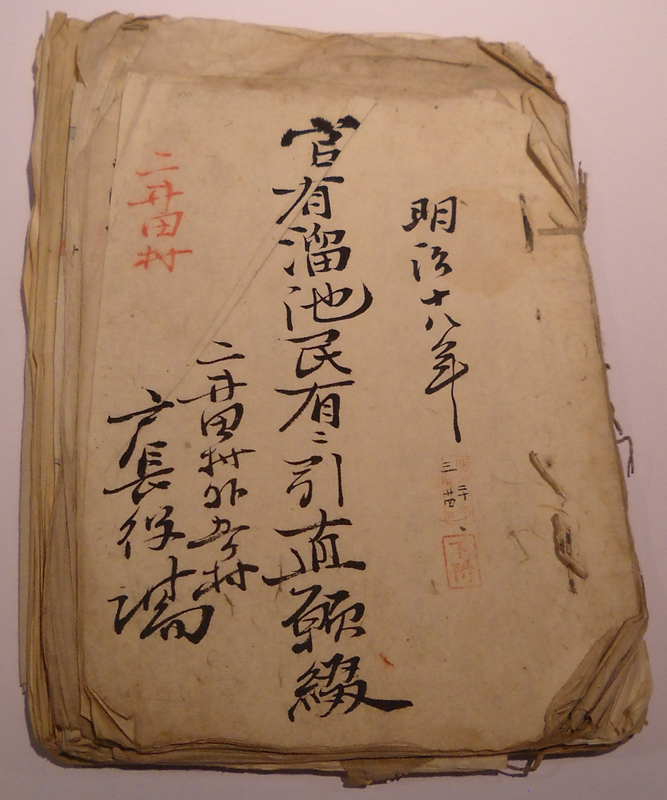 明治十八年
官有溜池民有ニ引直願綴
二井田村外五ケ村
戸長役場
二井田村